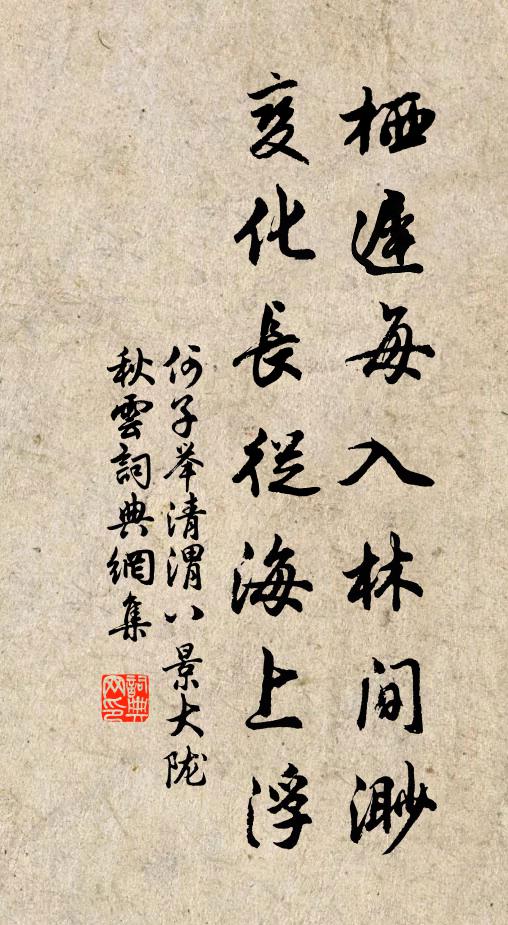 栖遲每入林間渺
變化長從海上浮
何子举清渭八景大陇
秋雲詞典網集
詞典
网印